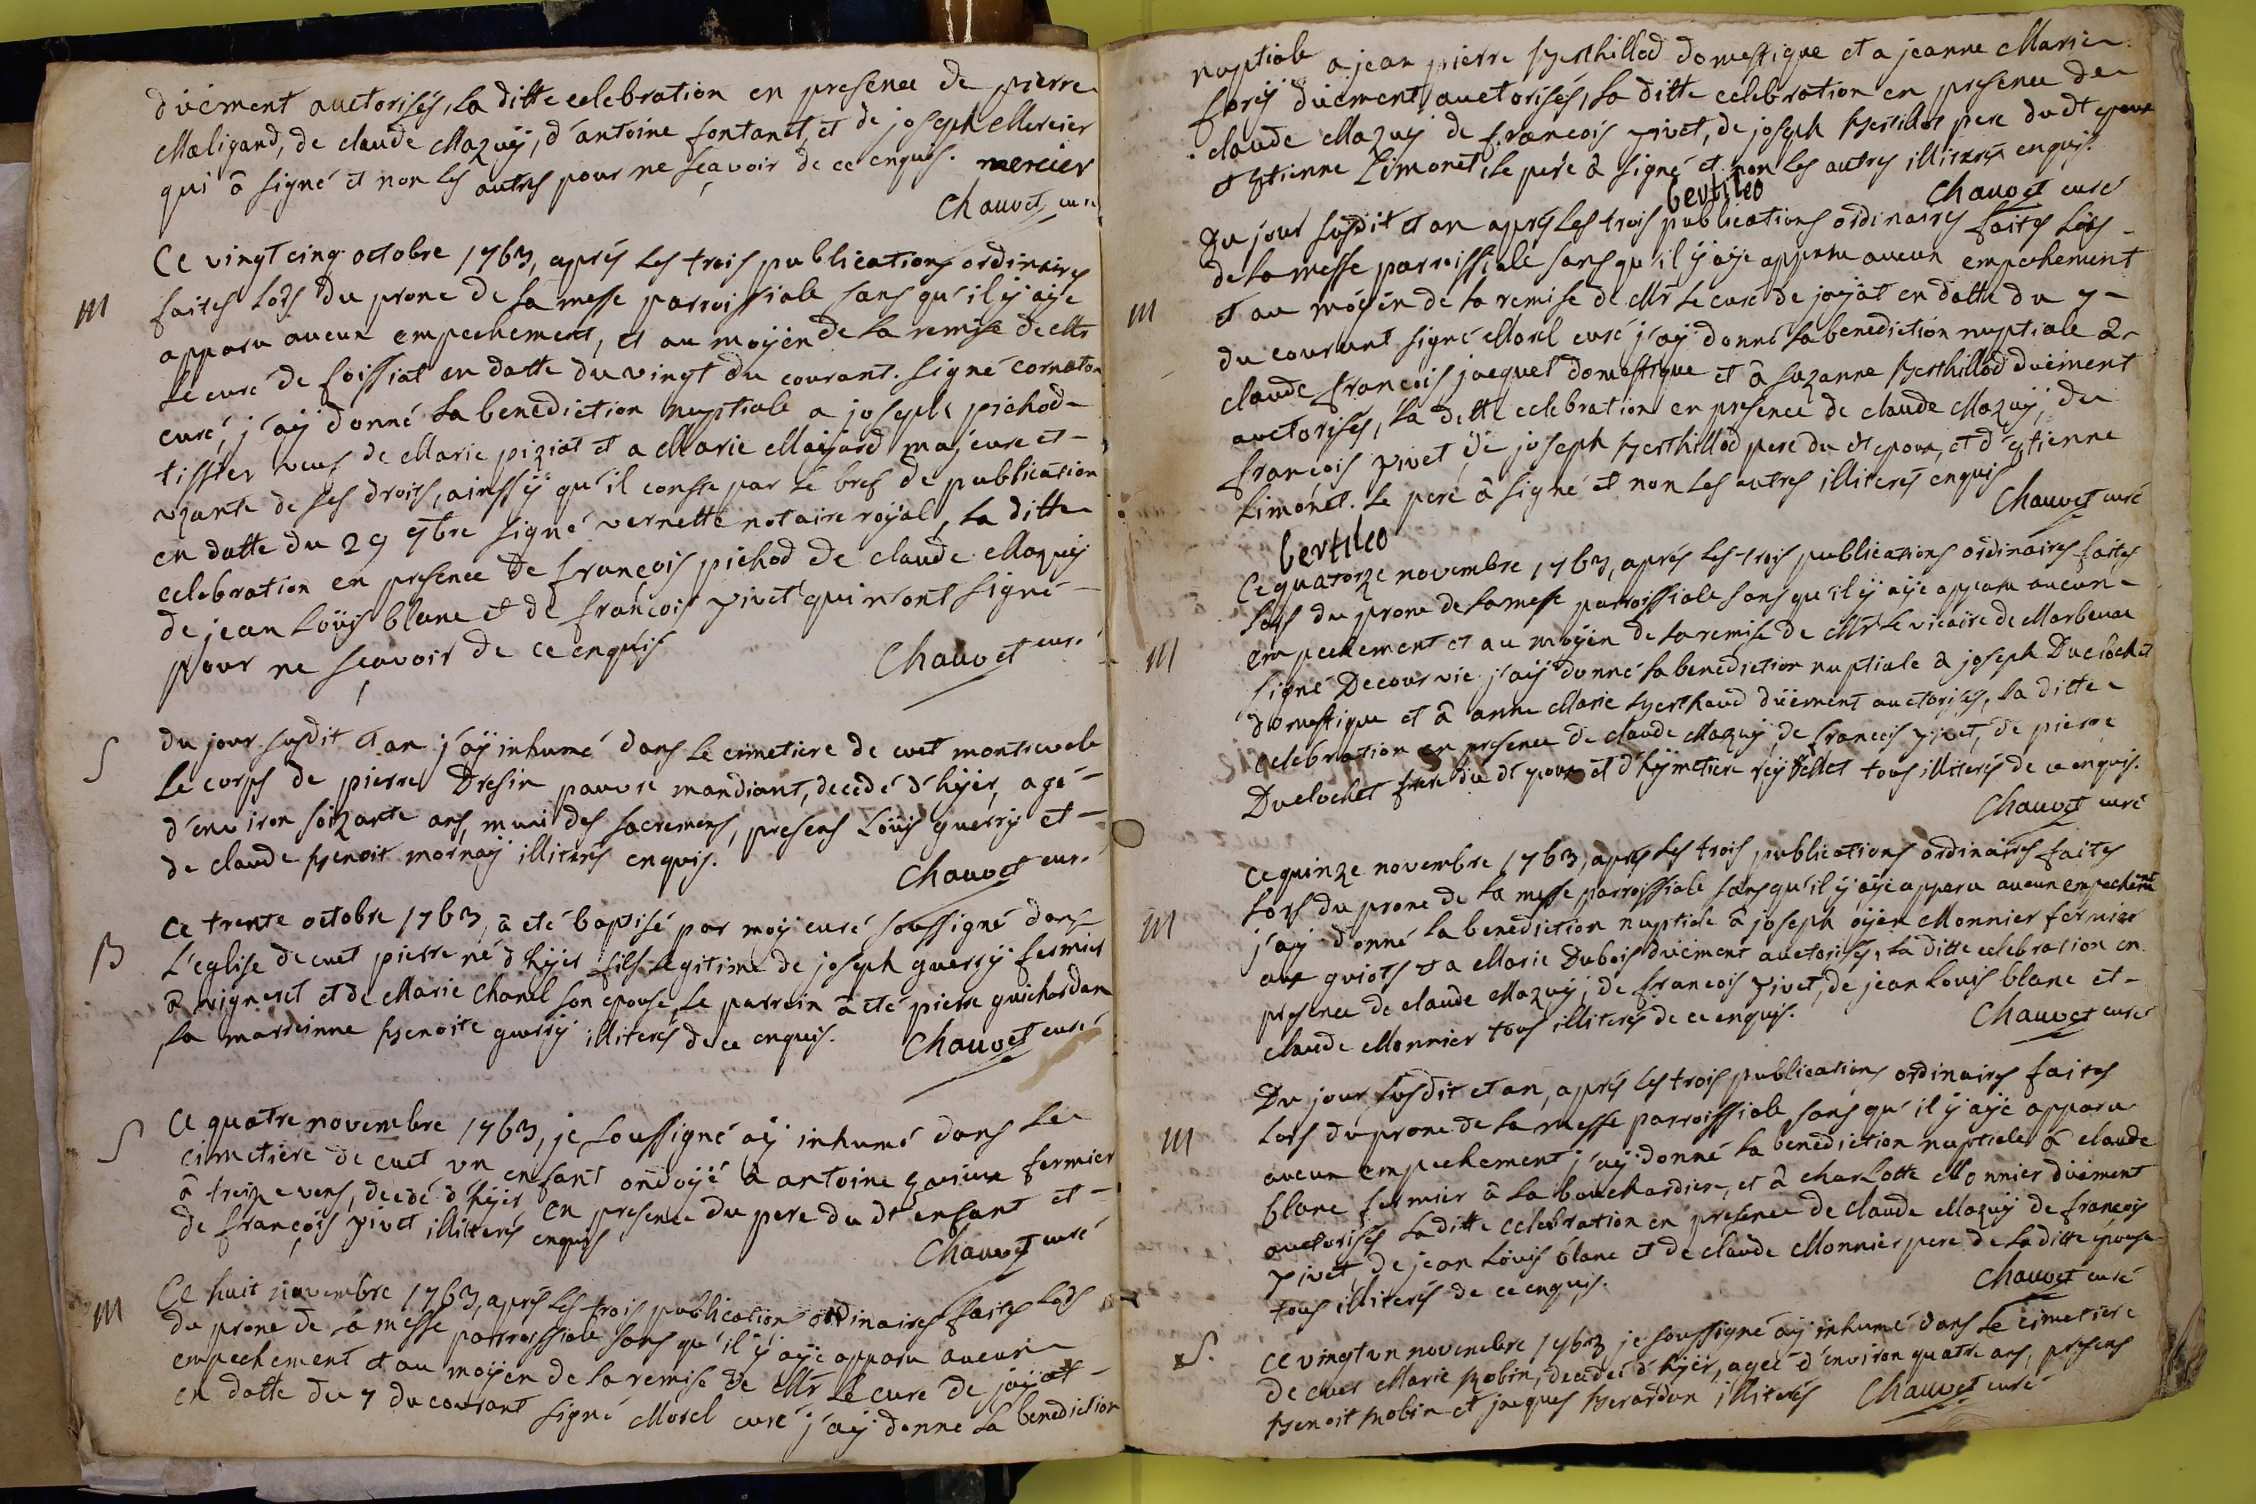 düement auctorisés, la ditte celebration en presence de pierre
Maligand, de claude Mazuÿ, d'antoine fontanet, et de joseph Mercier
qui â signé et non les autres pour ne sçavoir de ce enquis. mercier
Chauvet curé
Ce vingt cinq octobre 1763, aprés les trois publications ordinaires
M
faites lors du prone de la messe parroissiale sans qu'il ÿ aÿe
apparu aucun empechement, et au moÿen de la remise de Mr
le curé de foissiat en datte du vingt du courant. signé cornaton
curé, j'aÿ donné la benediction nuptiale a joseph pichod
tissier veuf de Marie piziat et a Marie Majard majeure et
uzante de ses droits, ainsÿ qu'il conste par le bref de publication
en datte du 29 9bre signé vernette notaire roÿal, la ditte
celebration en presence de françois pichod de claude Mazuÿ
de jean Loüis blanc et de françois vivet qui n'ont signé
pour ne sçavoir de ce enquis
Chauvet curé
S
du jour susdit et an j'aÿ inhumé dans le cimetiere de cuet montrevele
le corps de pierre Dresin pauvre mandiant, decedé d'hÿer, agé
d'environ soixante ans, muni des sacremens, presens Loüis guerrÿ et
de claude benoit mornaÿ illiterés enquis.
Chauvet curé
B
Ce trente octobre 1763, â eté baptisé par moÿ curé soussigné dans
L'eglise de cuet pierre né d'hÿer fils legitime de joseph guerrÿ fermier
â vigneret et de Marie Chanel son epouse, le parrein â eté pierre guichardan
la marreinne benoite guerrÿ illiterés de ce enquis.
Chauvet curé
S
Ce quatre novembre 1763, je soussigné aÿ inhumé dans le
cimetiere de cuet un enfant ondoÿé â antoine fermier
â treizevens, decedé d'hÿer en presence du pere du dt enfant et
de françois vivet illiterés enquis
Chauvet curé
M
Ce huit novembre 1763, aprés les trois publications ordinaires faites lors
du prone de la messe parroissiale sans qu'il ÿ aÿe apparu aucun
empechement et au moÿen de la remise de Mr le curé de jaÿat
en datte du 7 du courant signé Morel curé j'aÿ donné la benediction
nuptiale a jean pierre berthillod domestique et a jeanne Marie
foreÿ düement auctorisés, la ditte celebration en presence de
claude Mazuÿ de françois vivet, de joseph bertillot pere du dt epoux
et etienne Limonet, le pere â signé et non les autres illiterés enquis.
bertileo
Chauvet curé
Du jour susdit et an aprés les trois publications ordinaires faites lors
de la messe parroissiale sans qu'il ÿ aÿe apparu aucun empechement
M
et au moÿen de la remise de Mr le curé de jaÿat en datte du 7
du courant signé Morel curé j'aÿ donné la benediction nuptiale a
claude françois jacquet domestique et â suzanne berthillod düement
auctorisés, la ditte celebration en presence de claude Mazuÿ, du
françois vivet, de joseph berthillod pere du dt epoux, et d'etienne
Limonet. le pere â signé et non les autres illiterés enquis
Chauvet curé
bertileo
Ce quatorze novembre 1763, aprés les trois publications ordinaires faites
lors du prone de la messe parroissiale sans qu'il ÿ aÿe apparu aucun
M
empechement et au moÿen de la remise de Mr le vicaire de Marboux
signé Decourvic j'aÿ donné la benediction nuptiale â joseph Duclochet
domestique et â anne Marie berthaud düement auctorisés, la ditte
celebration en presence de claude Mazuÿ, de françois vivet, de pierre
Duclochet frere du dt epoux et d'hÿmetiere tous illiterés de ce enquis.
Chauvet curé
Ce quinze novembre 1763, aprés les trois publications ordinaires faites
M
lors du prone de la messe parroissiale sans qu'il ÿ aÿe apparu aucun empechemt
j'aÿ donné la benediction nuptiale â joseph oÿen Monnier fermier
aux guiots et a Marie Dubois düement auctorisés, la ditte celebration en
presence de claude Mazuÿ, de françois vivet, de jean Louis blanc et
claude Monnier tous illiterés de ce enquis.
Chauvet curé
Du jour susdit et an, aprés les trois publications ordinaires faites
M
lors du prone de la messe parroissiale sans qu'il ÿ aÿe apparu
aucun empechement j'aÿ donné la benediction nuptiale â claude
blanc fermier â la bouchardiere, et â charlotte Monnier düement
auctorisés la ditte celebration en presence de claude Mazuÿ de françois
vivet, de jean Loüis blanc et de claude Monnier pere de la ditte epouse
tous illiterés de ce enquis.
Chauvet curé
S.
Ce vingt un novembre 1763 je soussigné aÿ inhumé dans le cimetiere
de cuet Marie Robin, decedée d'hÿer, ageé d'environ quatre ans, presens
benoit Robin et jacques berardan illiterés
Chauvet curé